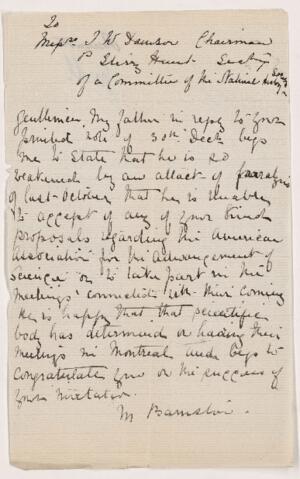 To
Messrs J W Dawson Chairman
P Sterry Hunt Secty
of a Committee of the Natural Hist Socy
Gentlemen, My father in reply to your
printed note of 30th Decr begs
me to State that he is so
weakened by an attack of paralysis
of last October that he is unable
to accept of any of your kind
proposals regarding the American
Association for the advancement of
Science or to take part in the
meetings connected with their coming
He is happy that that scientific
body has determined on having their
meetings in Montreal and begs to
congratulate you on the success of
your invitation
M Barnston